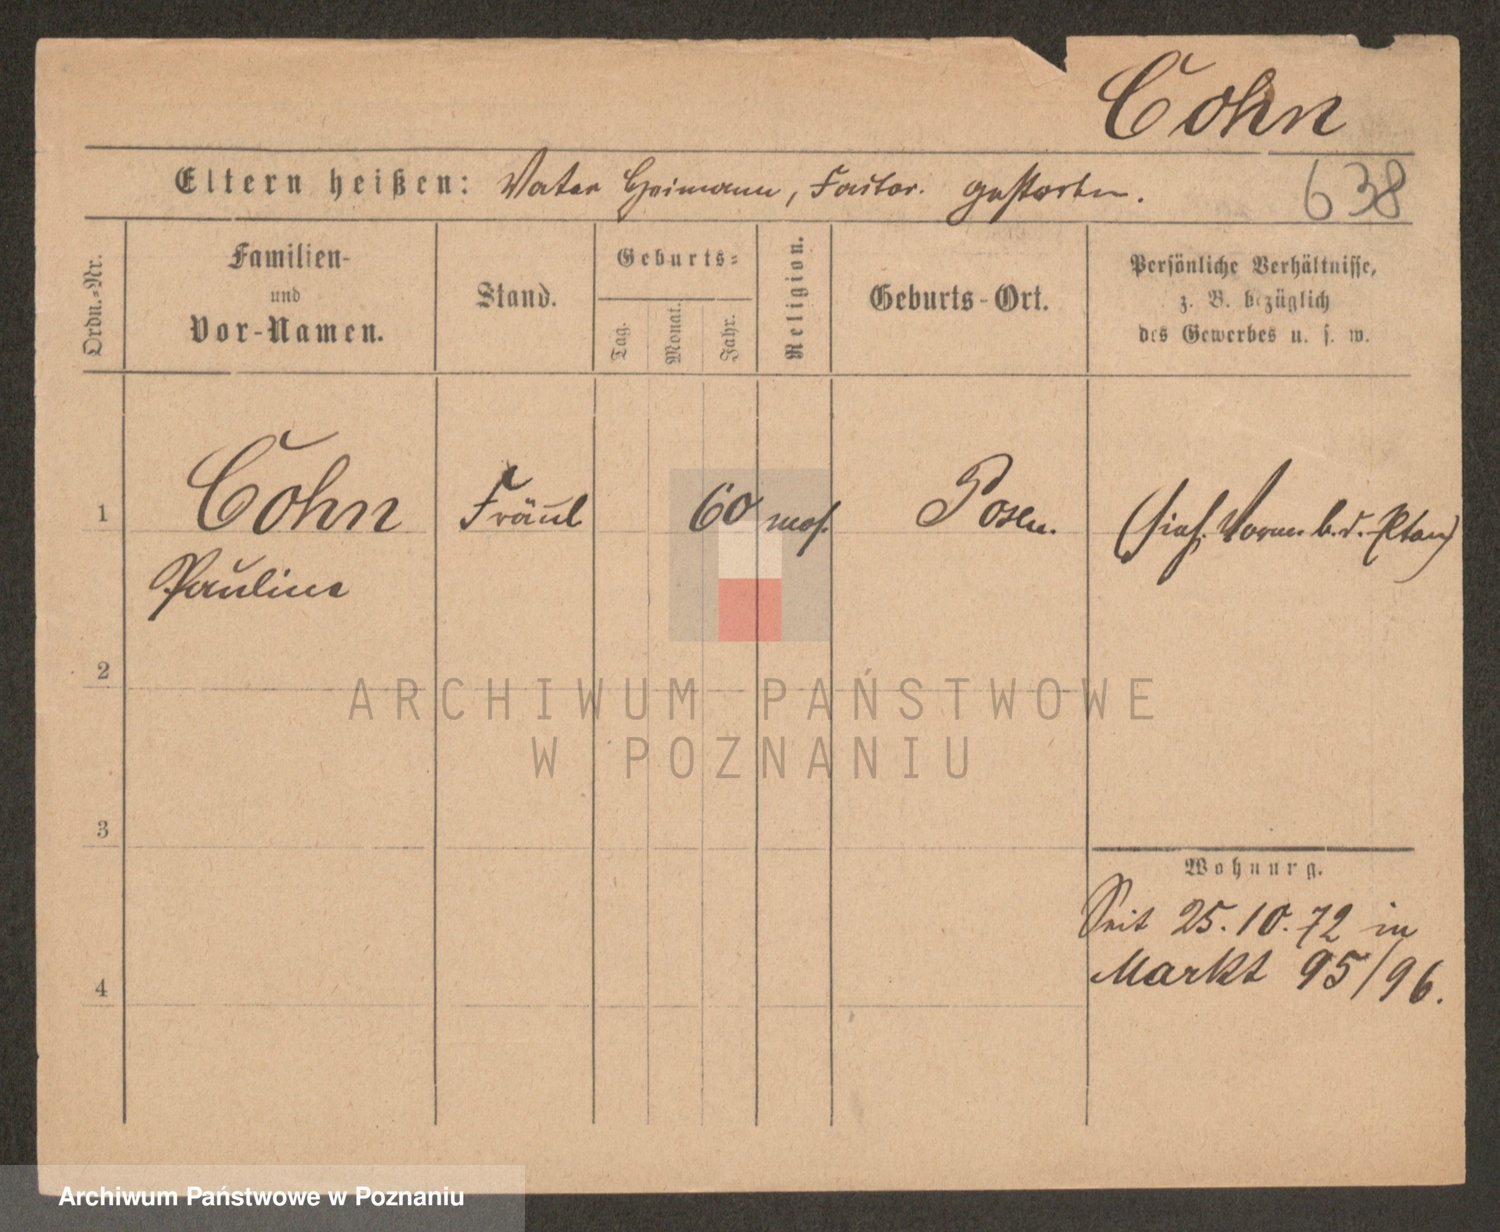 Cohn
Eltern heißen: Vater Heimann, Factor. gestorben.
638
Ordn.-Nr.
Familien-
und
Vor-Namen.
Stand.
Geburts-
Tag.
Monat.
Jahr.
Religion.
Geburts-Ort.
Persönliche Verhältnisse,
z. B. bezüglich
des Gewerbes u. s. w.
1
Cohn
Pauline
Fräul
60
mos.
Posen.
b. d.
2
3
4
Wohnung.
Seit 25.10.72 in
Markt 95/96.
ARCHIWUM PAŃSTWOWE
W POZNANIU
Archiwum Państwowe w Poznaniu